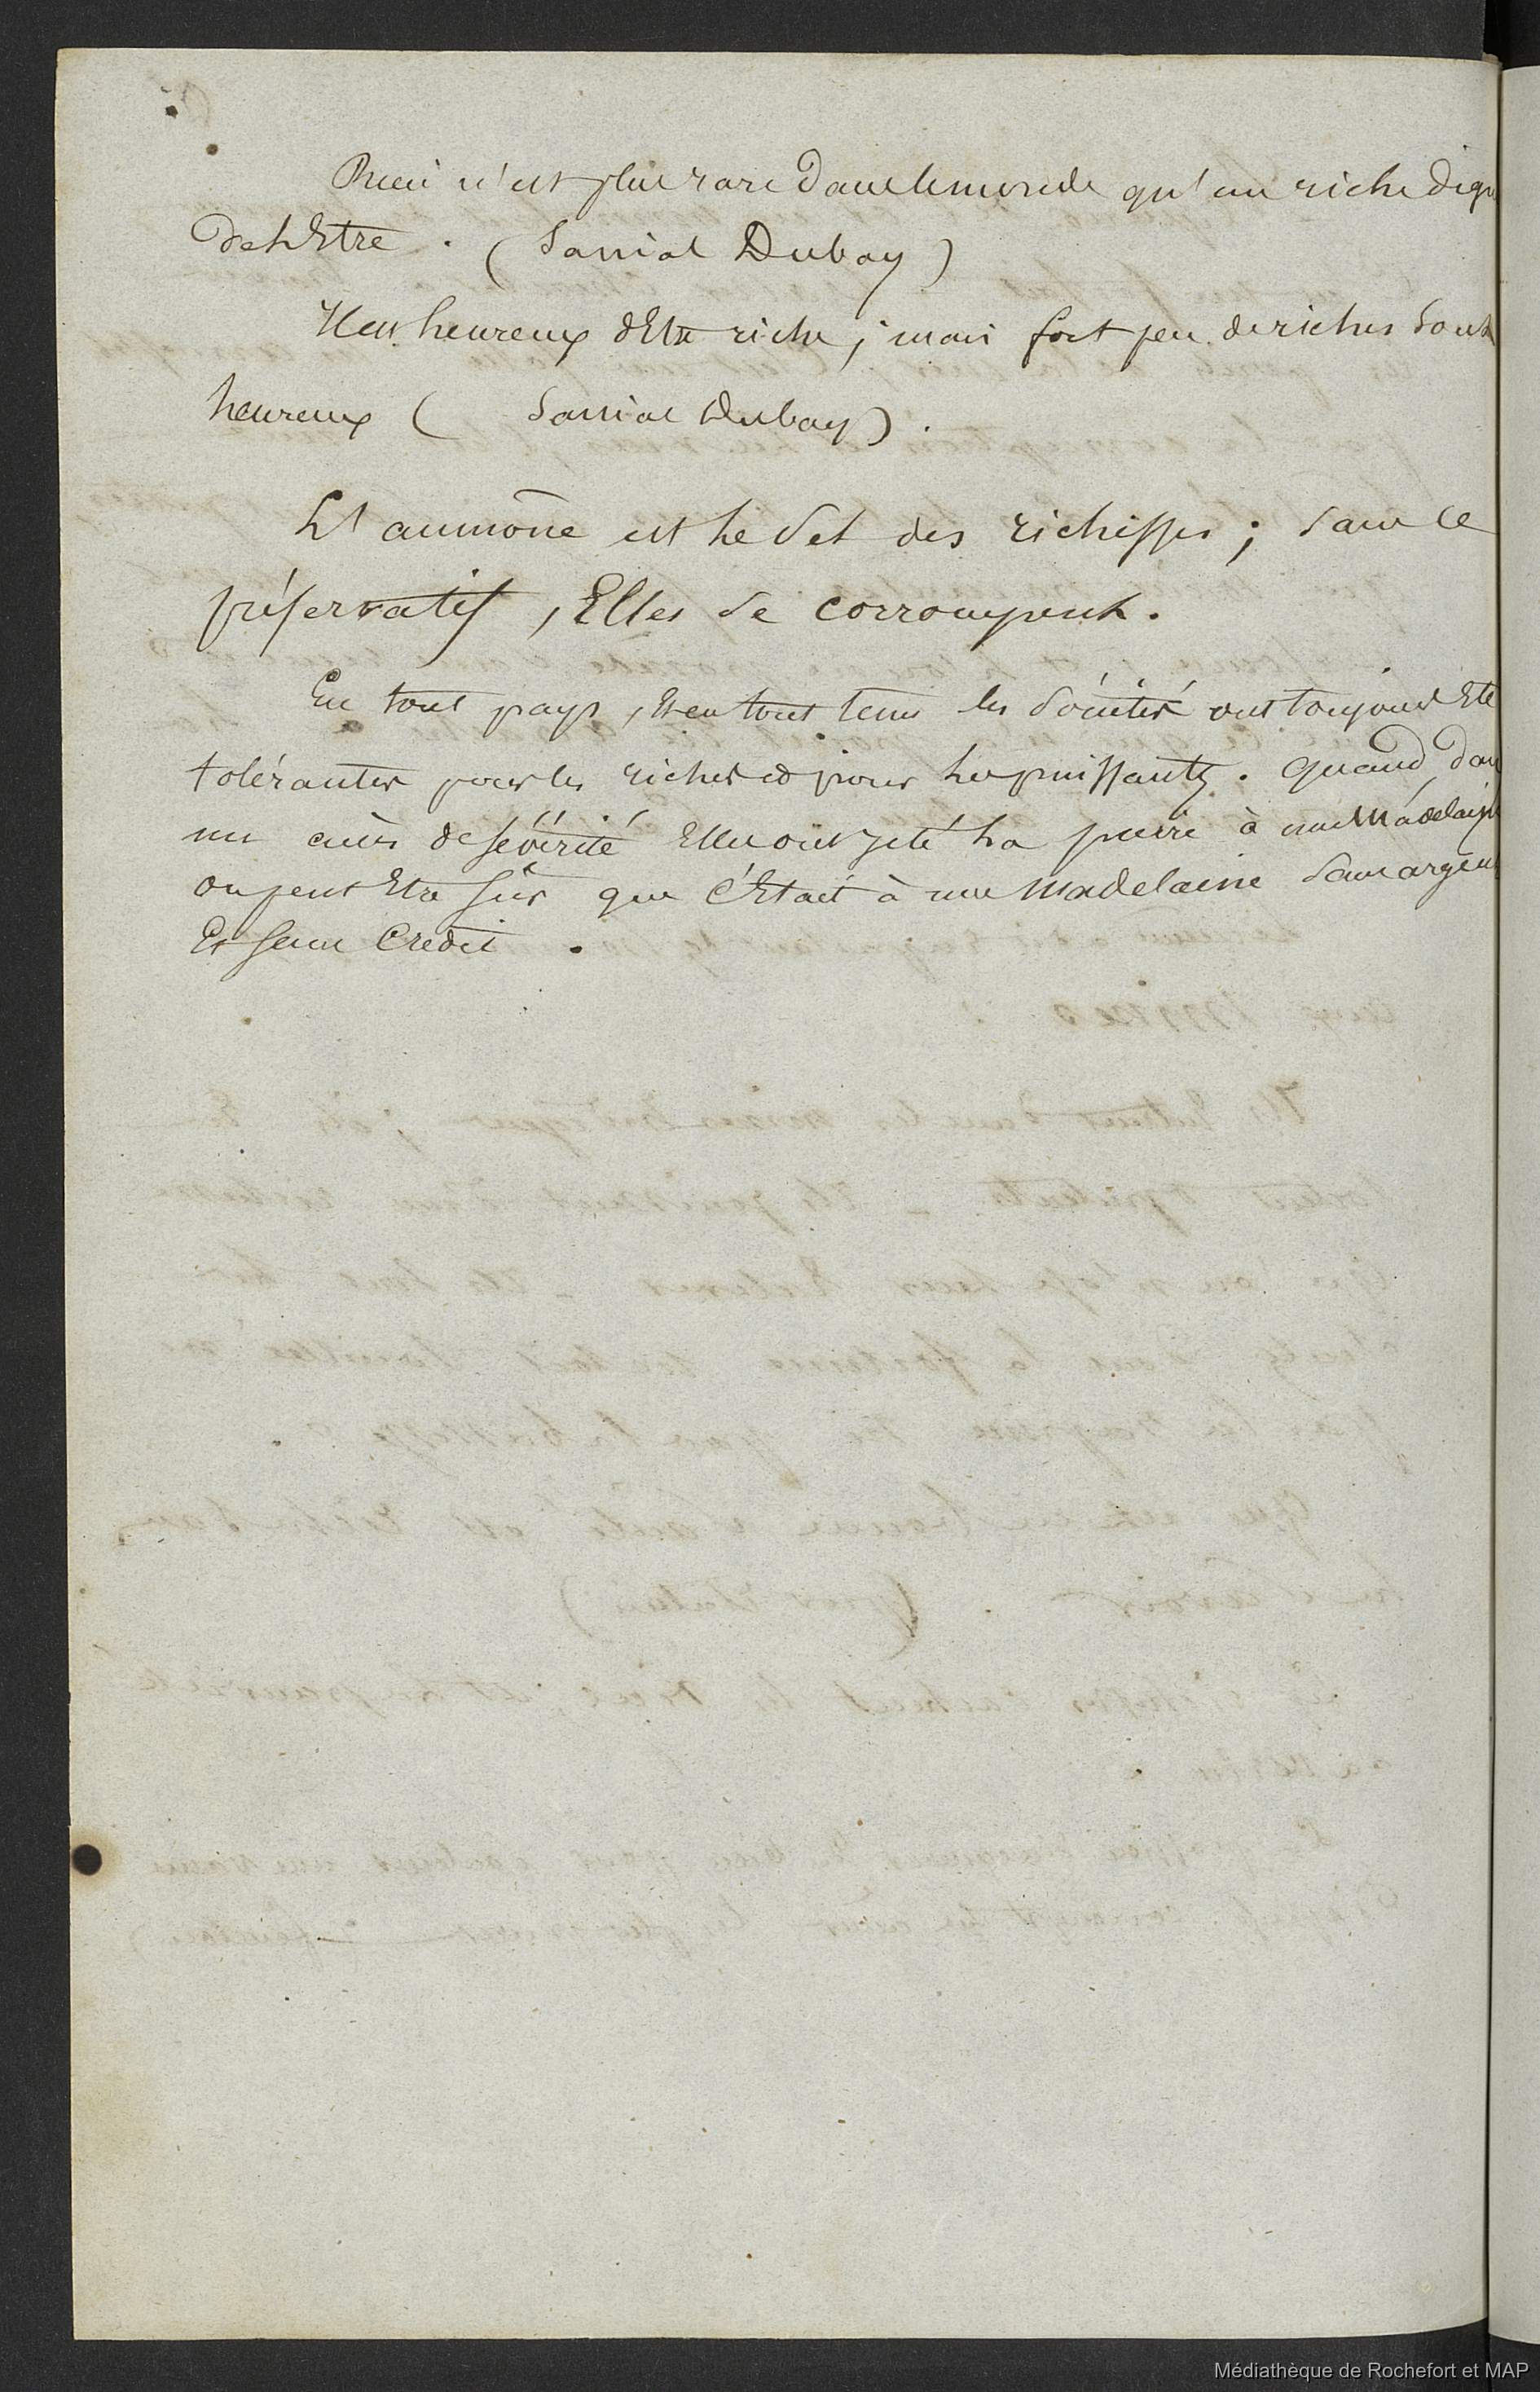 Rien n'est plus rare dans le monde qu'un riche dign
de l'Etre. (Sanial Dubay)
Il est heureux d'Etre riche, mais fort peu de riches sont
heureux (Sanial Dubay).
L'aumône est le sel des richesses; sans ce
préservatif, Elles se corrompent.
En tout pays, Et en tout tems les sociétés ont toujours Eté
tolérantes pour les riches et pour les puissants. Quand, dans
un accès de sévérité Elles ont jeté la pierre à une Madelaine
on peut Etre sûr que c'Etait à une Madelaine sans argent
Et sans Crédit.
Médiathèque de Rochefort et MAP